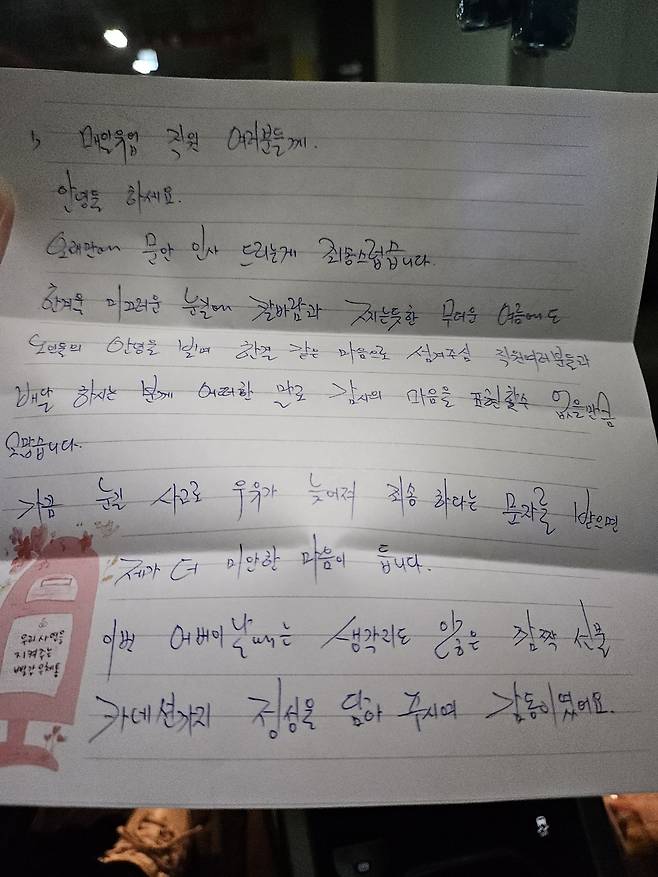 매일유업 직원 여러분들께.
안녕들 하세요.
오래만에 문안 인사 드리는게 죄송스럽습니다.
한겨울 미끄러운 눈길에 칼바람과 찌는듯한 무더운 여름에도
노인들의 안녕을 빌며 한결 같은 마음으로 섬겨주심 직원여러분들과
배달 하시는 분께 어떠한 말로 감사의 마음을 표현할수 없을만큼
고맙습니다.
가끔 눈길 사고로 우유가 늦어져 죄송 하다는 문자를 받으면
제가 더 미안한 마음이 듭니다.
이번 어버이날때는 생각지도 않은 깜짝 선물
카네션까지 정성을 담아 주시며 감동이였어요.
우리사연을
지켜주는
빨간우체통